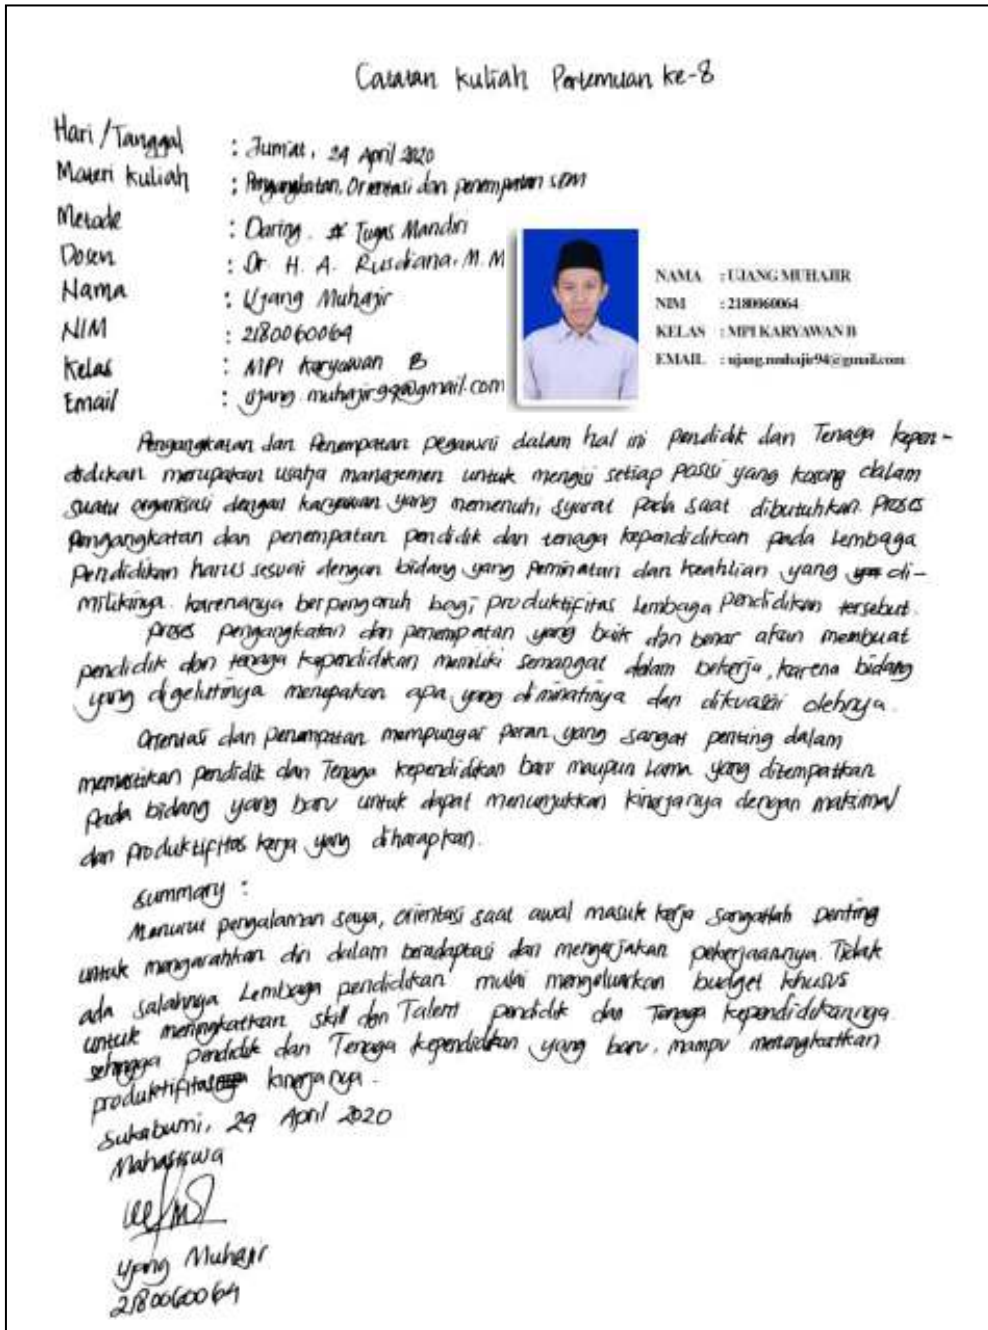 Catatan kuliah Pertemuan ke-8
Hari/Tanggal : Jum'at, 24 April 2020
Materi kuliah : Pengangkatan, Orientasi dan penempatan SDM
Metode : Daring. Tugas Mandiri
Dosen : Dr. H. A. Rusdiana, M.M
Nama : Ujang Muhajir
NIM : 2180060064
Kelas : MPI Karyawan B
Email : ujang.muhajir94@gmail.com
NAMA : UJANG MUHAJIR
NIM : 2180060064
KELAS : MPI KARYAWAN B
EMAIL : ujang.muhajir94@gmail.com
Pengangkatan dan Penempatan pegawai dalam hal ini pendidik dan Tenaga kepen-
didikan merupakan usaha manajemen untuk mengisi setiap posisi yang kosong dalam
suatu organisasi dengan karyawan yang memenuhi syarat pada saat dibutuhkan. Proses
pengangkatan dan penempatan pendidik dan tenaga kependidikan pada Lembaga
Pendidikan harus sesuai dengan bidang yang peminatan dan keahlian yang di-
milikinya. karenanya berpengaruh bagi produktifitas Lembaga pendidikan tersebut.
proses pengangkatan dan penempatan yang baik dan benar akan membuat
pendidik dan tenaga kependidikan memiliki semangat dalam bekerja, karena bidang
yang digelutinya merupakan apa yang diminatinya dan dikuasai olehnya.
Orientasi dan penempatan mempunyai peran yang sangat penting dalam
memastikan pendidik dan Tenaga kependidikan baru maupun Lama yang ditempatkan
Pada bidang yang baru untuk dapat menunjukkan kinerjanya dengan maksimal
dan produktifitas kerja yang diharapkan.
Summary :
Menurut pengalaman saya, orientasi saat awal masuk kerja sangatlah penting
untuk mengarahkan diri dalam beradaptasi dan mengerjakan pekerjaannya. Tidak
ada salahnya Lembaga pendidikan mulai mengeluarkan budget khusus
untuk meningkatkan skill dan Talent pendidik dan Tenaga kependidikannya.
sehingga pendidik dan Tenaga kependidikan yang baru, mampu meningkatkan
produktifitas kinerjanya.
Sukabumi, 24 April 2020
Mahasiswa
Ujang Muhajir
2180060064